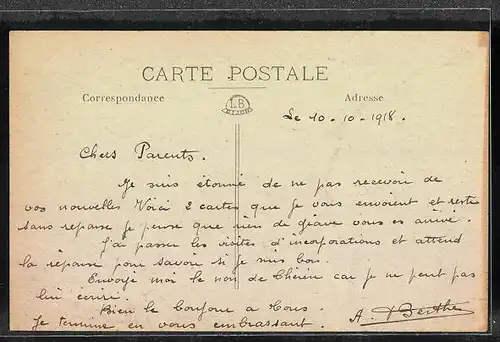 CARTE POSTALE
Correspondance
L.B
DIJON
Adresse
Le 10-10-1918.
Chers Parents.
Je suis étonné de ne pas recevoir de
vos nouvelles Voici 2 cartes que je vous envoient et reste
sans reponse je pense que rien de grave vous es arrivé.
J'ai passer les visites d'incorporations et attend
la reponse pour savoir si je suis bon.
Envoyé moi le non de car je ne peut pas
lui écrire.
Bien le bonjour a tous.
Je termine en vous embrassant. A. Berthe